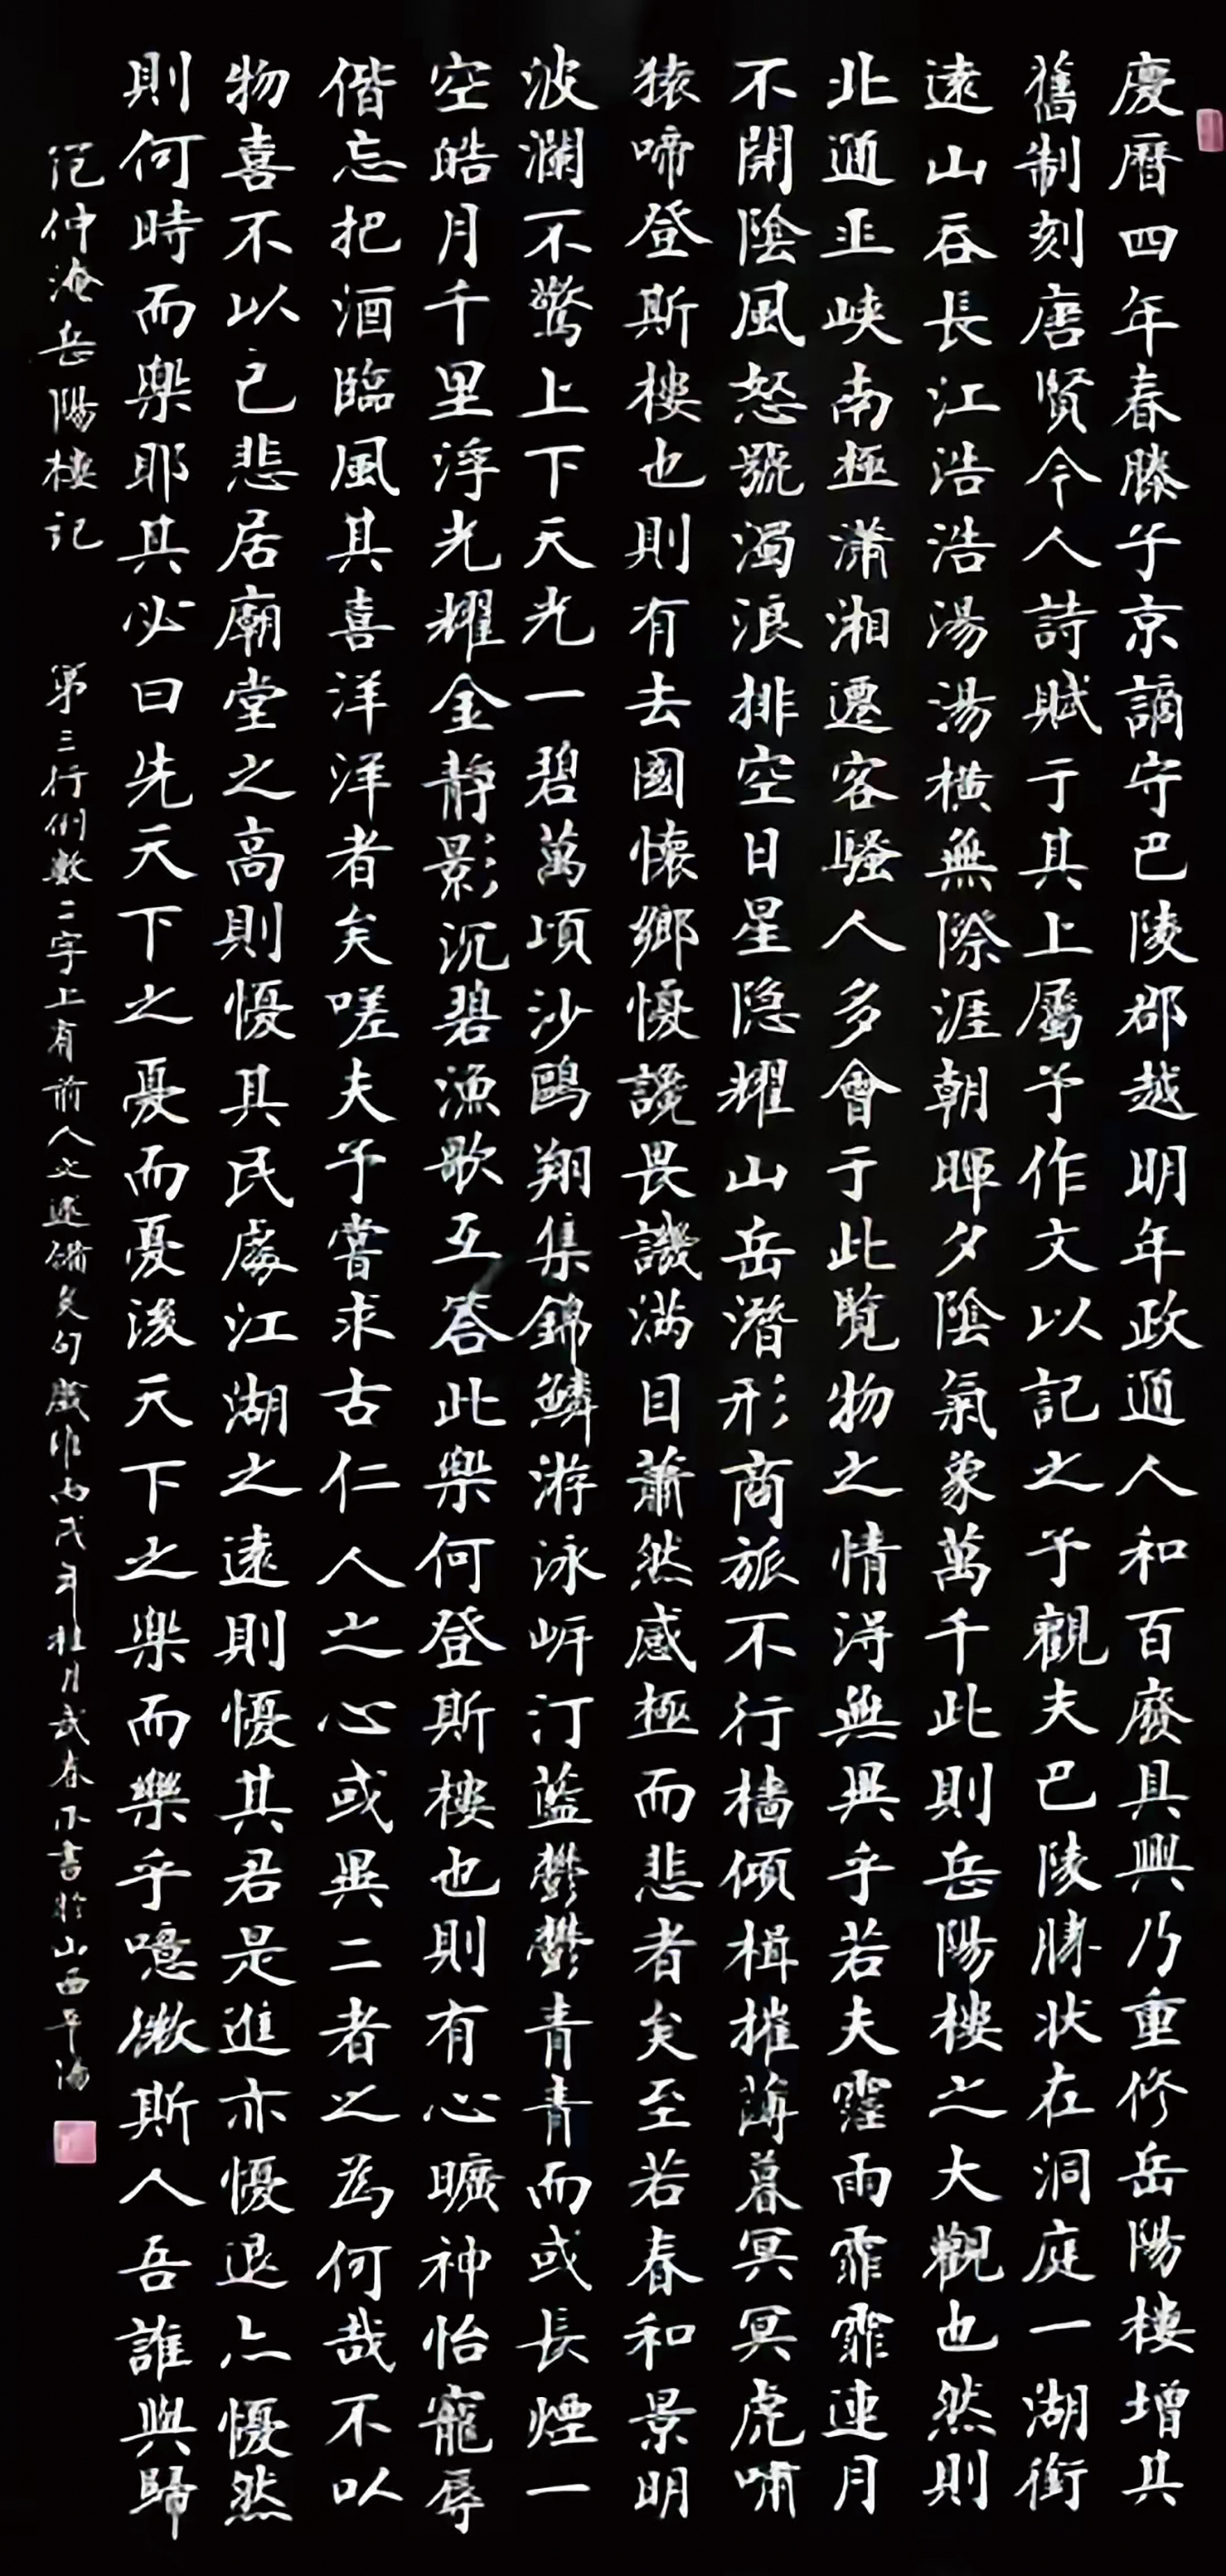 慶曆四年春滕子京謫守巴陵郡越明年政通人和百廢具興乃重修岳陽樓增其
舊制刻唐賢今人詩賦于其上屬予作文以記之予觀夫巴陵勝狀在洞庭一湖銜
遠山吞長江浩浩湯湯橫無際涯朝暉夕陰氣象萬千此則岳陽樓之大觀也然則
北通巫峽南極瀟湘遷客騷人多會于此覽物之情得無異乎若夫霪雨霏霏連月
不開陰風怒號濁浪排空日星隱耀山岳潛形商旅不行檣傾楫摧薄暮冥冥虎嘯
猿啼登斯樓也則有去國懷鄉懮讒畏譏滿目蕭然感極而悲者矣至若春和景明
波瀾不驚上下天光一碧萬頃沙鷗翔集錦鱗游泳岸汀藍鬱鬱青青而或長煙一
空皓月千里浮光耀金靜影沉碧漁歌互答此樂何登斯樓也則有心曠神怡寵辱
偕忘把酒臨風其喜洋洋者矣嗟夫予嘗求古仁人之心或異二者之為何哉不以
物喜不以己悲居廟堂之高則懮其民處江湖之遠則懮其君是進亦懮退亦懮然
則何時而樂耶其必曰先天下之憂而憂後天下之樂而樂乎噫微斯人吾誰與歸
范仲淹岳陽樓記 第三行倒數二字上有前人之述備矣句 歲丙戌年桂月武春書於山西平陽